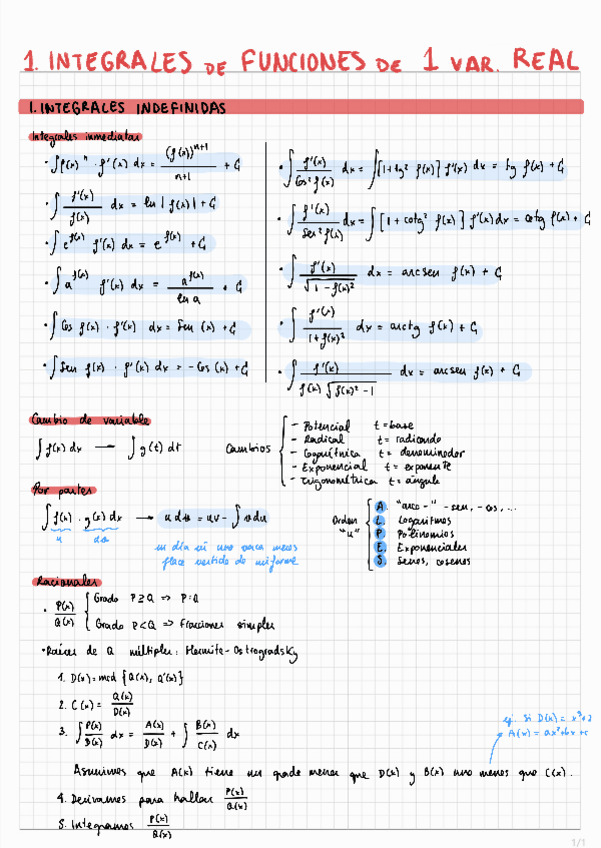 1. INTEGRALES DE FUNCIONES DE 1 VAR. REAL
1. INTEGRALES INDEFINIDAS
Integrales inmediatas
· ∫ f(x)^n · f'(x) dx = (f(x))^(n+1) / (n+1) + C
· ∫ f'(x) / f(x) dx = ln | f(x) | + C
· ∫ e^f(x) f'(x) dx = e^f(x) + C
· ∫ a^f(x) f'(x) dx = a^f(x) / ln a + C
· ∫ Cos f(x) · f'(x) dx = Sen (x) + C
· ∫ Sen f(x) · f'(x) dx = - Cos (x) + C
· ∫ f'(x) / Cos² f(x) dx = ∫ [1 + tg² f(x)] f'(x) dx = tg f(x) + C
· ∫ f'(x) / Sen² f(x) dx = ∫ [1 + cotg² f(x)] f'(x) dx = cotg f(x) + C
· ∫ f'(x) / √(1 - f(x)²) dx = arcsen f(x) + C
· ∫ f'(x) / (1 + f(x)²) dx = arctg f(x) + C
· ∫ f'(x) / (f(x) √(f(x)² - 1)) dx = arcsen f(x) + C
Cambio de variable
∫ f(x) dx → ∫ g(t) dt
Cambios
- Potencial t = base
- Radical t = radicando
- Logarítmica t = denominador
- Exponencial t = exponente
- Trigonométrica t = ángulo
Por partes
∫ f(x) · g(x) dx → u dv = uv - ∫ v du
u dv
un día vi una vaca menos
flaca vestida de uniforme
Orden "u"
A. "arco-" - sen, - cos, ...
L Logaritmos
P Polinomios
E. Exponenciales
S Senos, cosenos
Racionales
· P(x) / Q(x)
Grado P ≥ Q ⇒ P : Q
Grado P < Q ⇒ Fracciones simples
· Raíces de Q múltiples: Hermite - Ostrogradsky
1. D(x) = mcd {Q(x), Q'(x)}
2. C(x) = Q(x) / D(x)
3. ∫ P(x) / D(x) dx = A(x) / D(x) + ∫ B(x) / C(x) dx
ej. Si D(x) =
A(x) = ax² + bx + c
Asumimos que A(x) tiene un grado menor que D(x) y B(x) uno menos que C(x).
4. Derivamos para hallar P(x) / Q(x)
5. Integramos P(x) / Q(x)
1/1